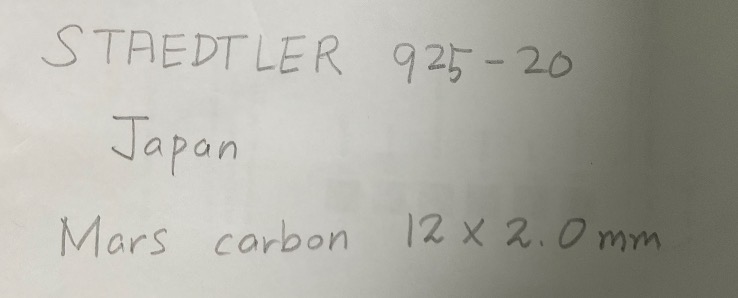 STAEDTLER 925-20
Japan
Mars carbon 12 x 2.0mm